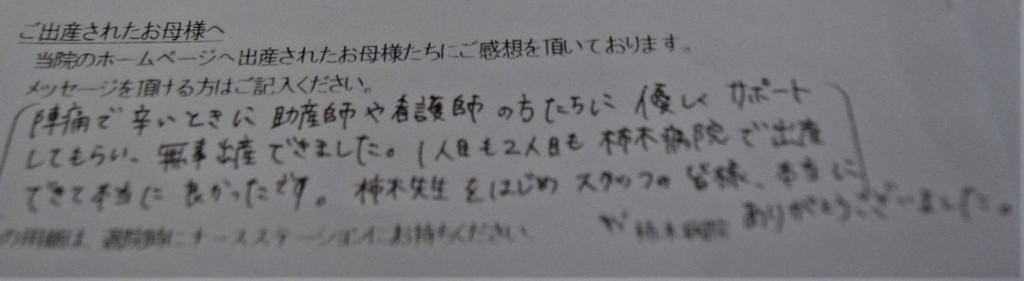 ご出産されたお母様へ
当院のホームページへ出産されたお母様たちにご感想を頂いております。
メッセージを頂ける方はご記入ください。
陣痛で辛いときに 助産師や看護師の方たちに 優しくサポート
してもらい、無事出産できました。1人目も2人目も 柿木病院で出産
できて本当に良かったです。柿木先生をはじめスタッフの皆様、本当に
ありがとうございました。
の用紙は、退院時にナースステーションにお持ちください 柿木病院